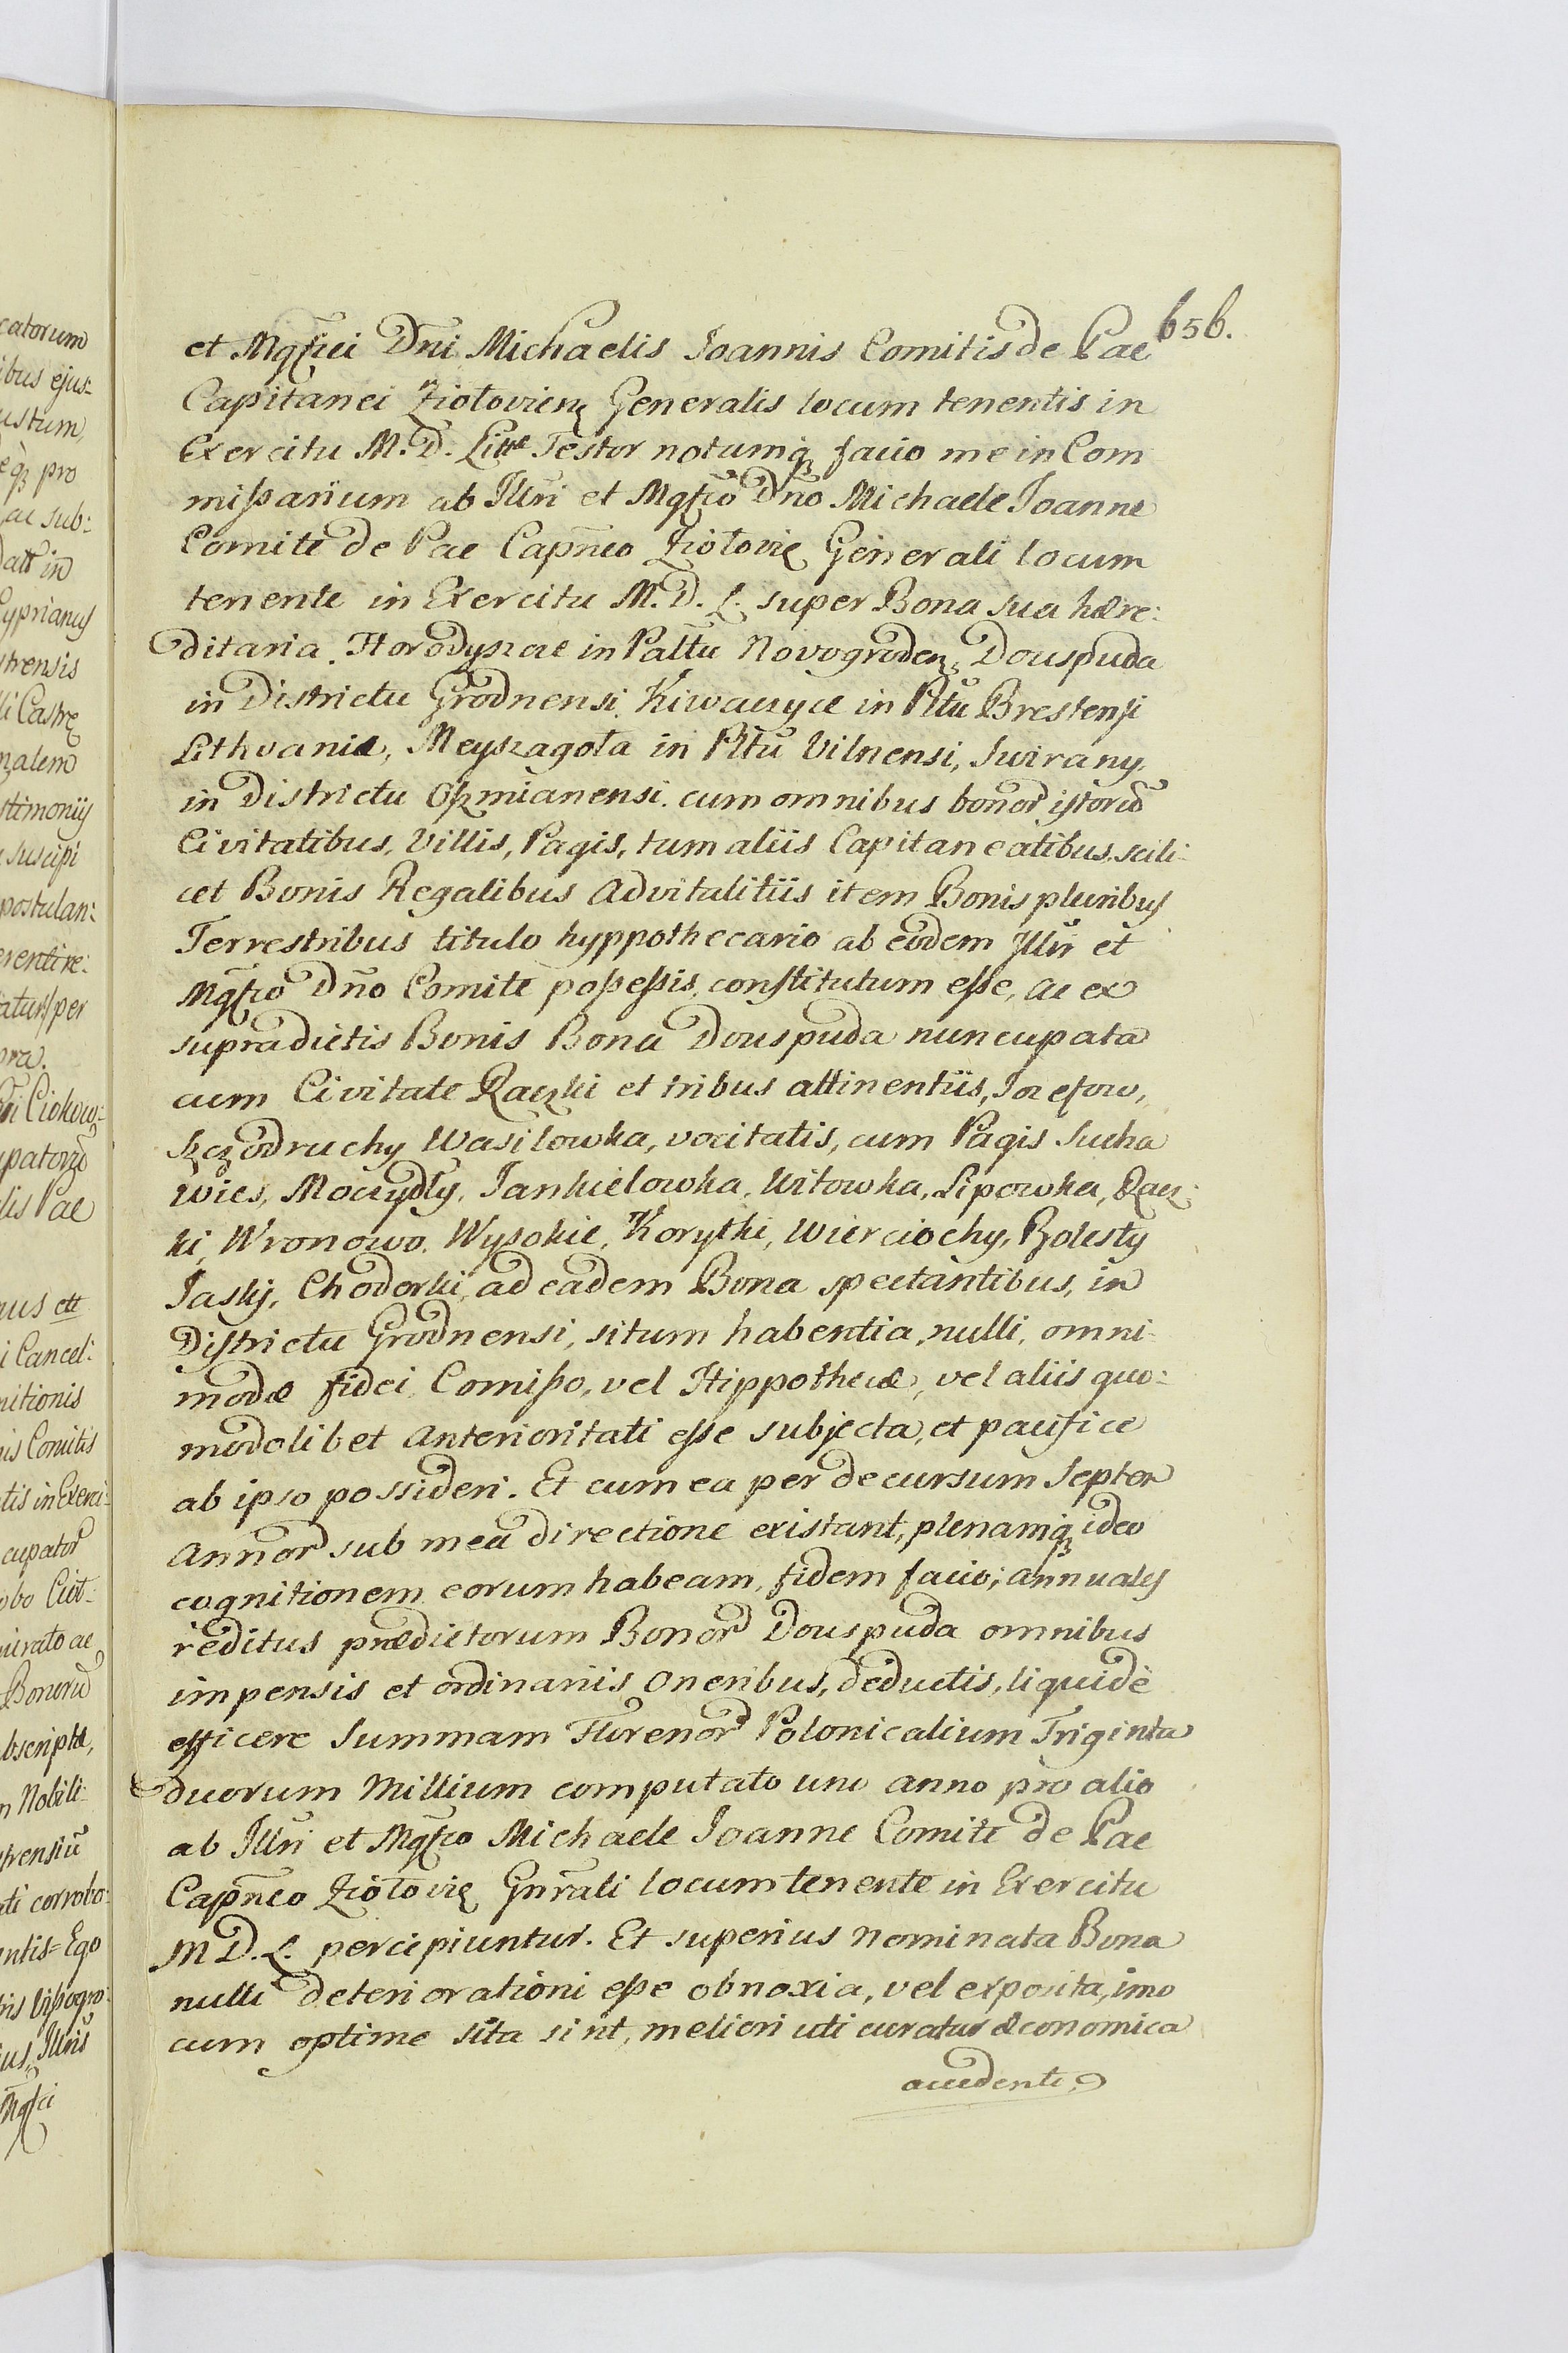 656.
et Mgfici Dni Michaelis Joannis Comitis de Pac
Capitanei Ziołovien Generalis locum tenentis in
Exercitu M. D. Littæ Testor notumq facio me in Com
missarium ab Illri et Mgfco Dño Michaele Joanne
Comite de Pac Capñeo Ziołovię Generali locum
tenente in Exercitu M. D. L. super Bona sua hære:
ditaria. Horodyszcze in Pałtu Novogroden, Douspuda
in Districtu Grodnensi Kiwaczyce in Pttu Brestensi
Lithvaniæ, Meyszagoła in Pttu Vilnensi, Swirany
in Districtu Oszmianensi. cum omnibus bonor istorũ
Civitatibus, Villis, Pagis, tum aliis Capitaneatibus, scili:
cet Bonis Regalibus Advitalitiis item Bonis pluribus
Terrestribus titulo hyppothecario ab eodem Illri et
Mgfco Dño Comite possessis, constitutum esse, ac ex
supradictis Bonis Bona Douspuda nuncupata
cum Civitate Raczki et tribus attinentiis, Jozefow,
Szczodruchy Wasilowka, vocitatis, cum Pagis Sucha
wies, Moczydły, Jankielowka, Witowka, Lipowka, Racz:
ki, Wronowo, Wysokie, Korytki, Wierciochy, Bolesty
Jaski, Chodorki, ad eadem Bona spectantibus, in
Districtu Grodnensi, situm habentia, nulli, omni:
modæ fidei Comisso, vel Hippothecæ, vel aliis quo:
modolibet Anterioritati esse subjecta, et pacifice
ab ipso possideri. Et cum ea per decursum Septem
Annor sub mea directione existant, plenamq ideo
cognitionem eorum habeam, fidem facio; annuales
reditus prædictorum Bonor Douspuda omnibus
impensis et ordinariis Oneribus, deductis, liquidè
efficere Summam Florenor Polonicalium Triginta
duorum Millium computato uno anno pro alio
ab Illri et Mgfco Michaele Joanne Comite de Pac
Capñeo Ziołovię Gnrali locumtenente in Exercitu
M D. L. percipiuntur. Et superius nominata Bona
nulli deteriorationi esse obnoxia, vel exposita, imo
cum optime sita sint, meliori uti curatur œconomica
accedente,